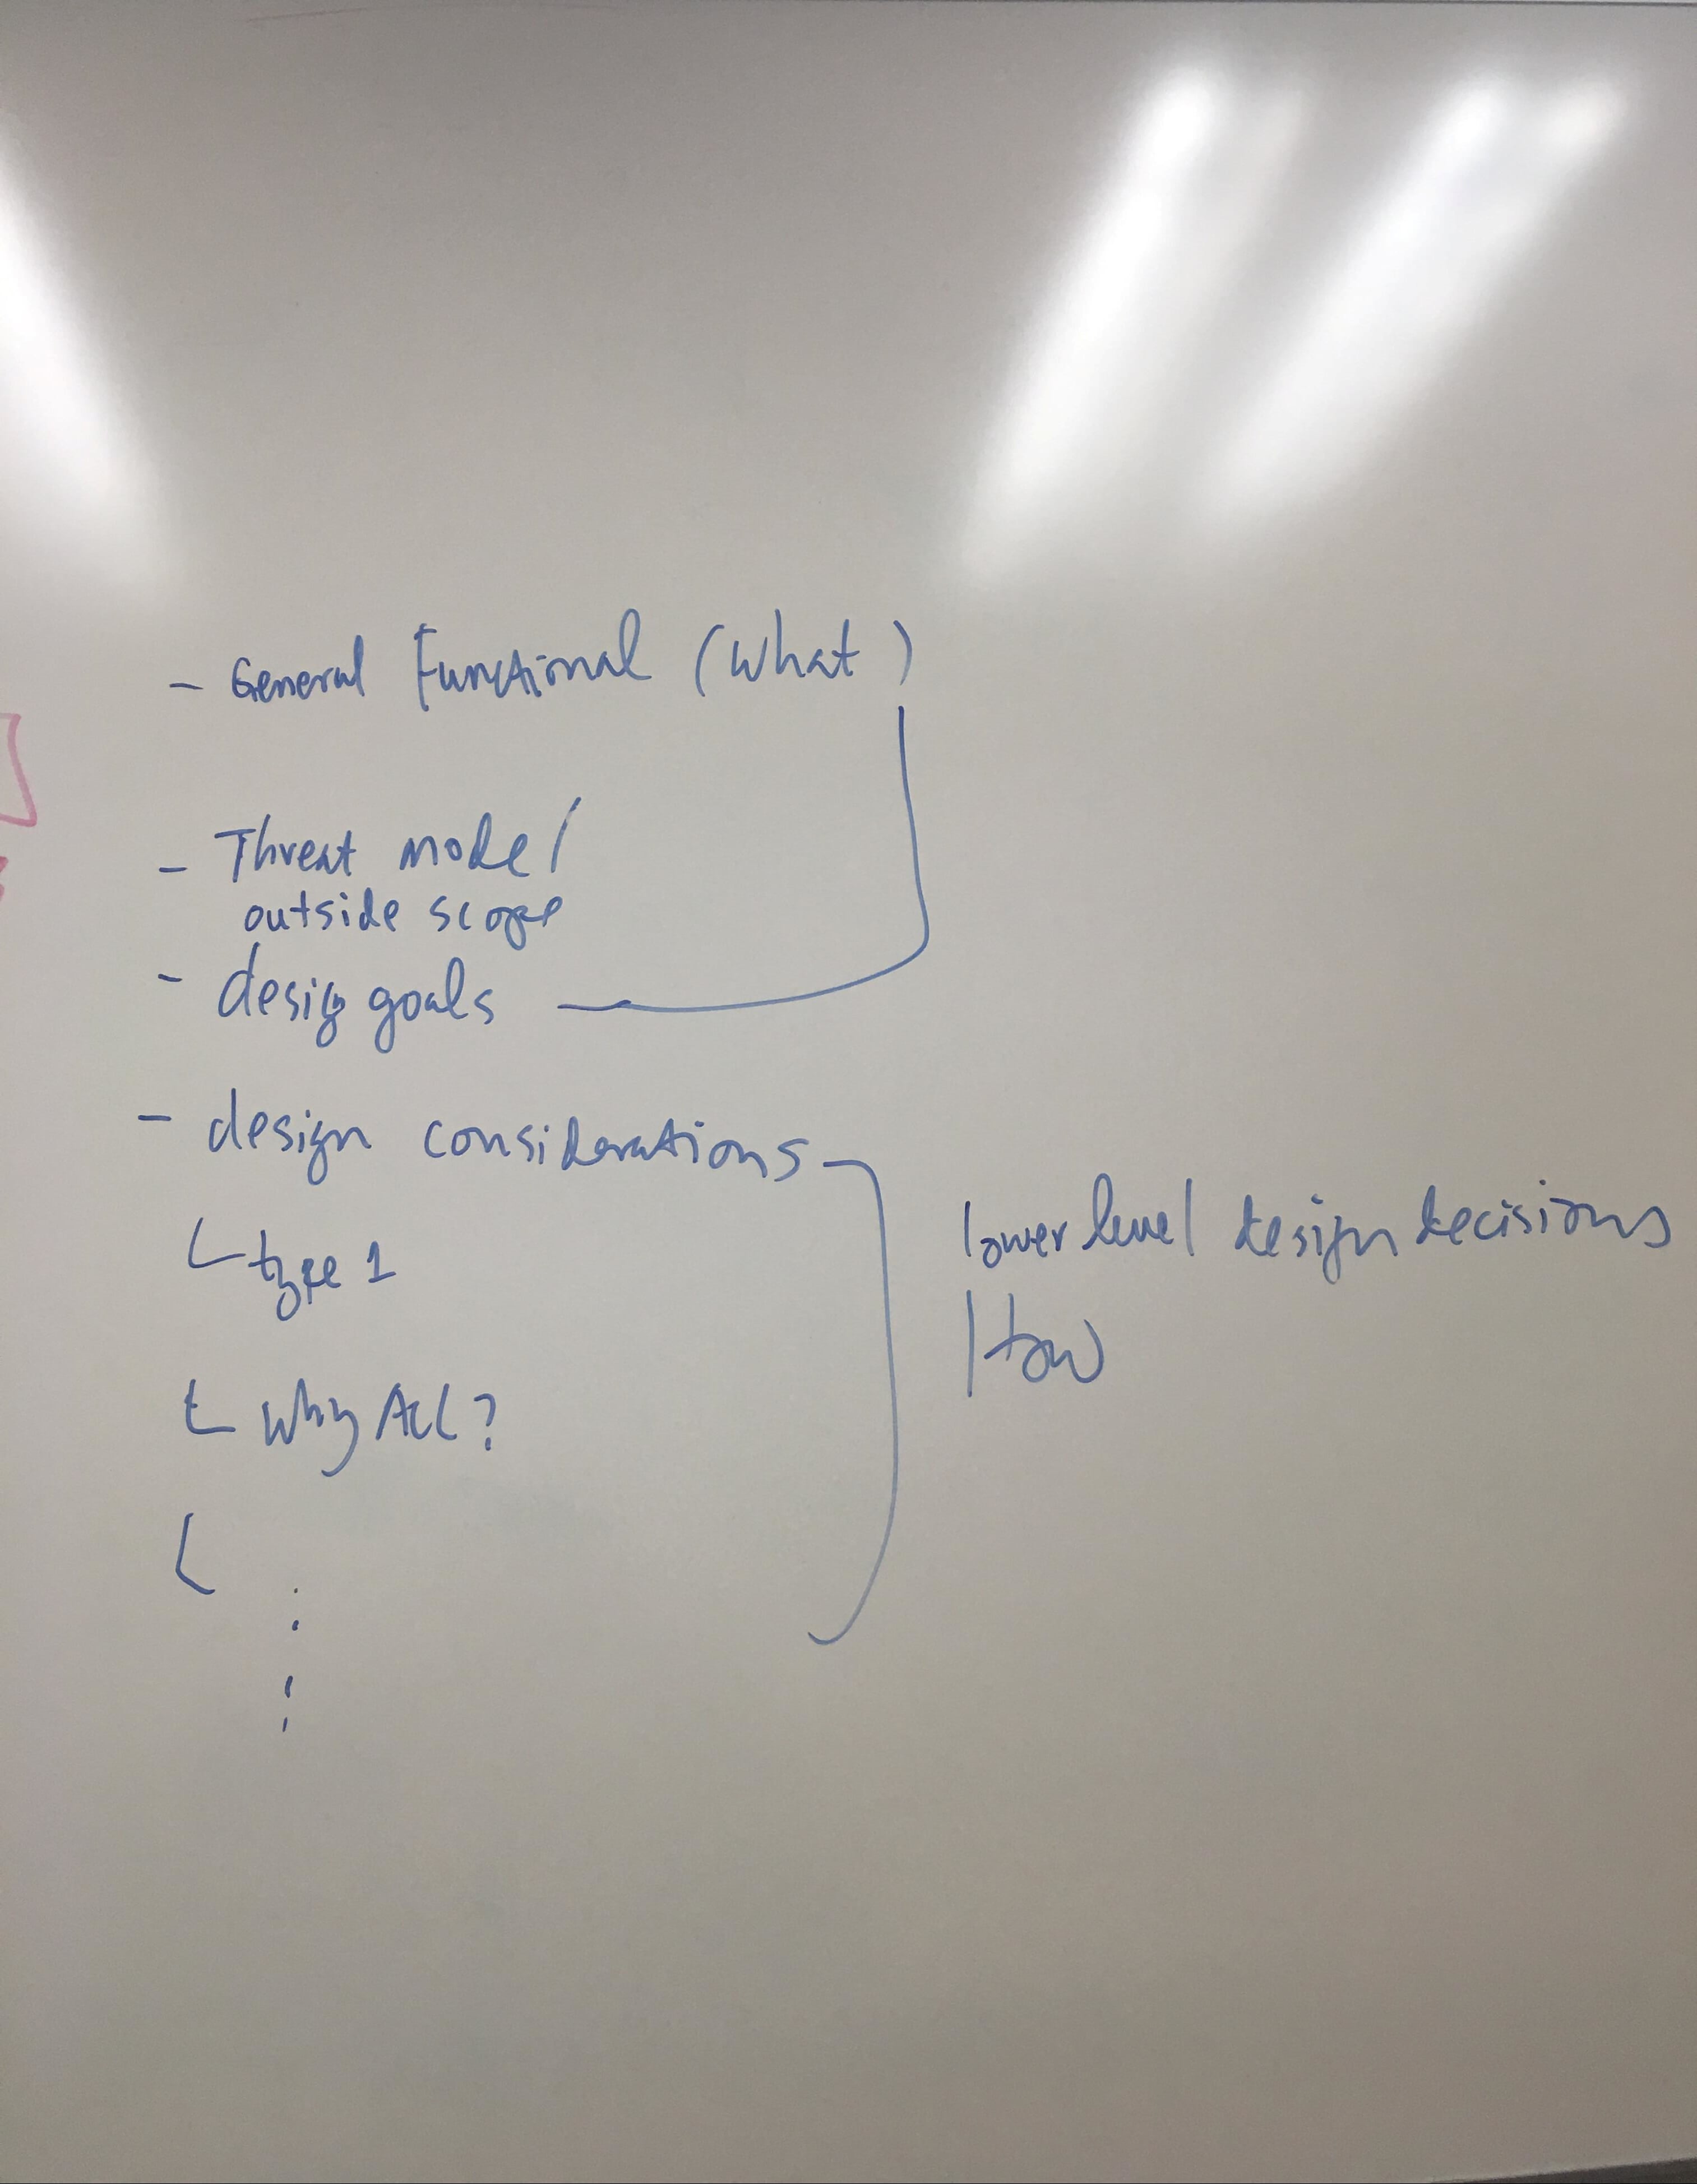 - General Functional (What)
- Threat model
outside scope
- design goals
- design considerations
type 1
Why ACL?
lower level design decisions
How